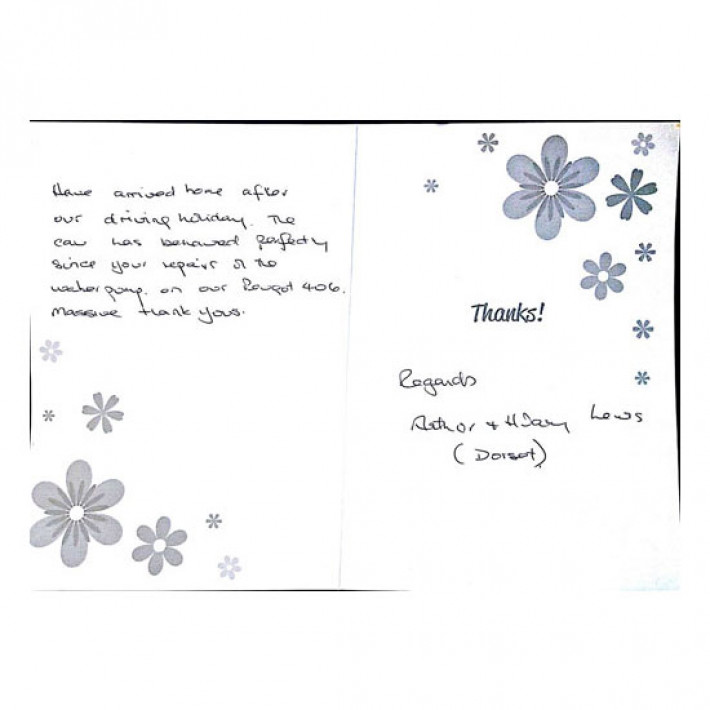 Have arrived home after
our driving holiday. The
car has behaved perfectly
since your repairs of the
water pump on our Peugot 406.
Massive thank yous.
Thanks!
Regards
Arthur + Hilary Lewis
(Dorset)